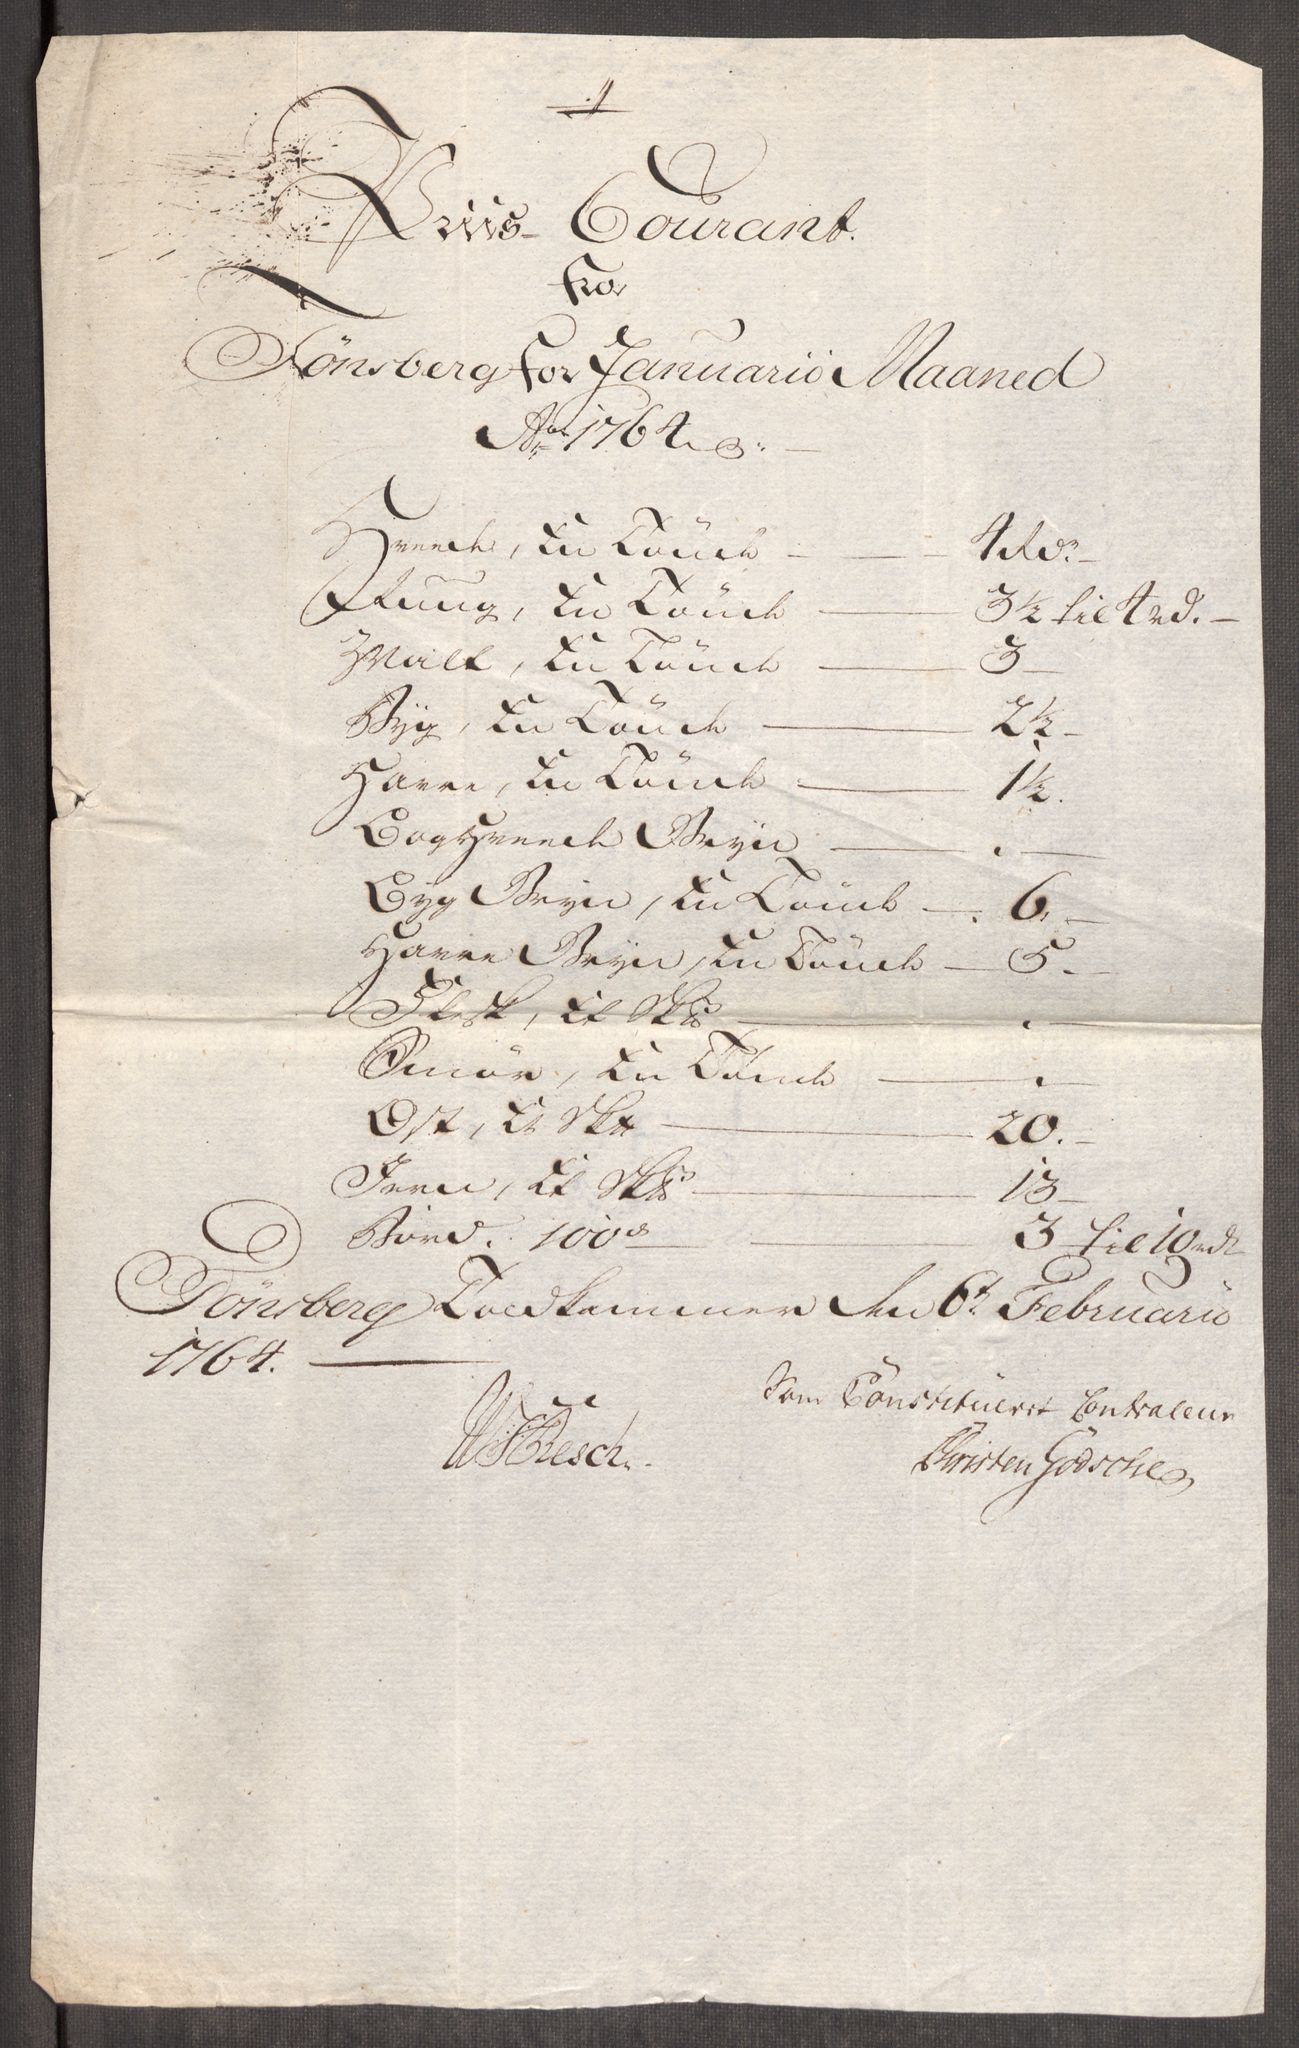 1
Priis Courant.
fra
Tönsberg for Januarii Maaned
Ao 1764.
Hvede, En Tönde — 4 rdr. —
Rug, En Tönde — 3½ til 4 rd. —
Malt, En Tönde — 3 —
Byg, En Tönde — 2½ —
Havre, En Tönde — 1½.
Boghvede Gryn — . —
Byg Gryn, En Tönde — 6. —
Havre Gryn, En Tönde — 5. —
Flesk, Et Sk℔ — . —
Smör, En Tönde — . —
Ost, Et Sk℔ — 20. —
Jern, Et Sk℔ — 13 —
Bord. 100de — 3 til 10 rdr
Tönsberg Toldkammer den 6t Februarii
1764. —
Som Constitueret Controleur
Christen Gödsche